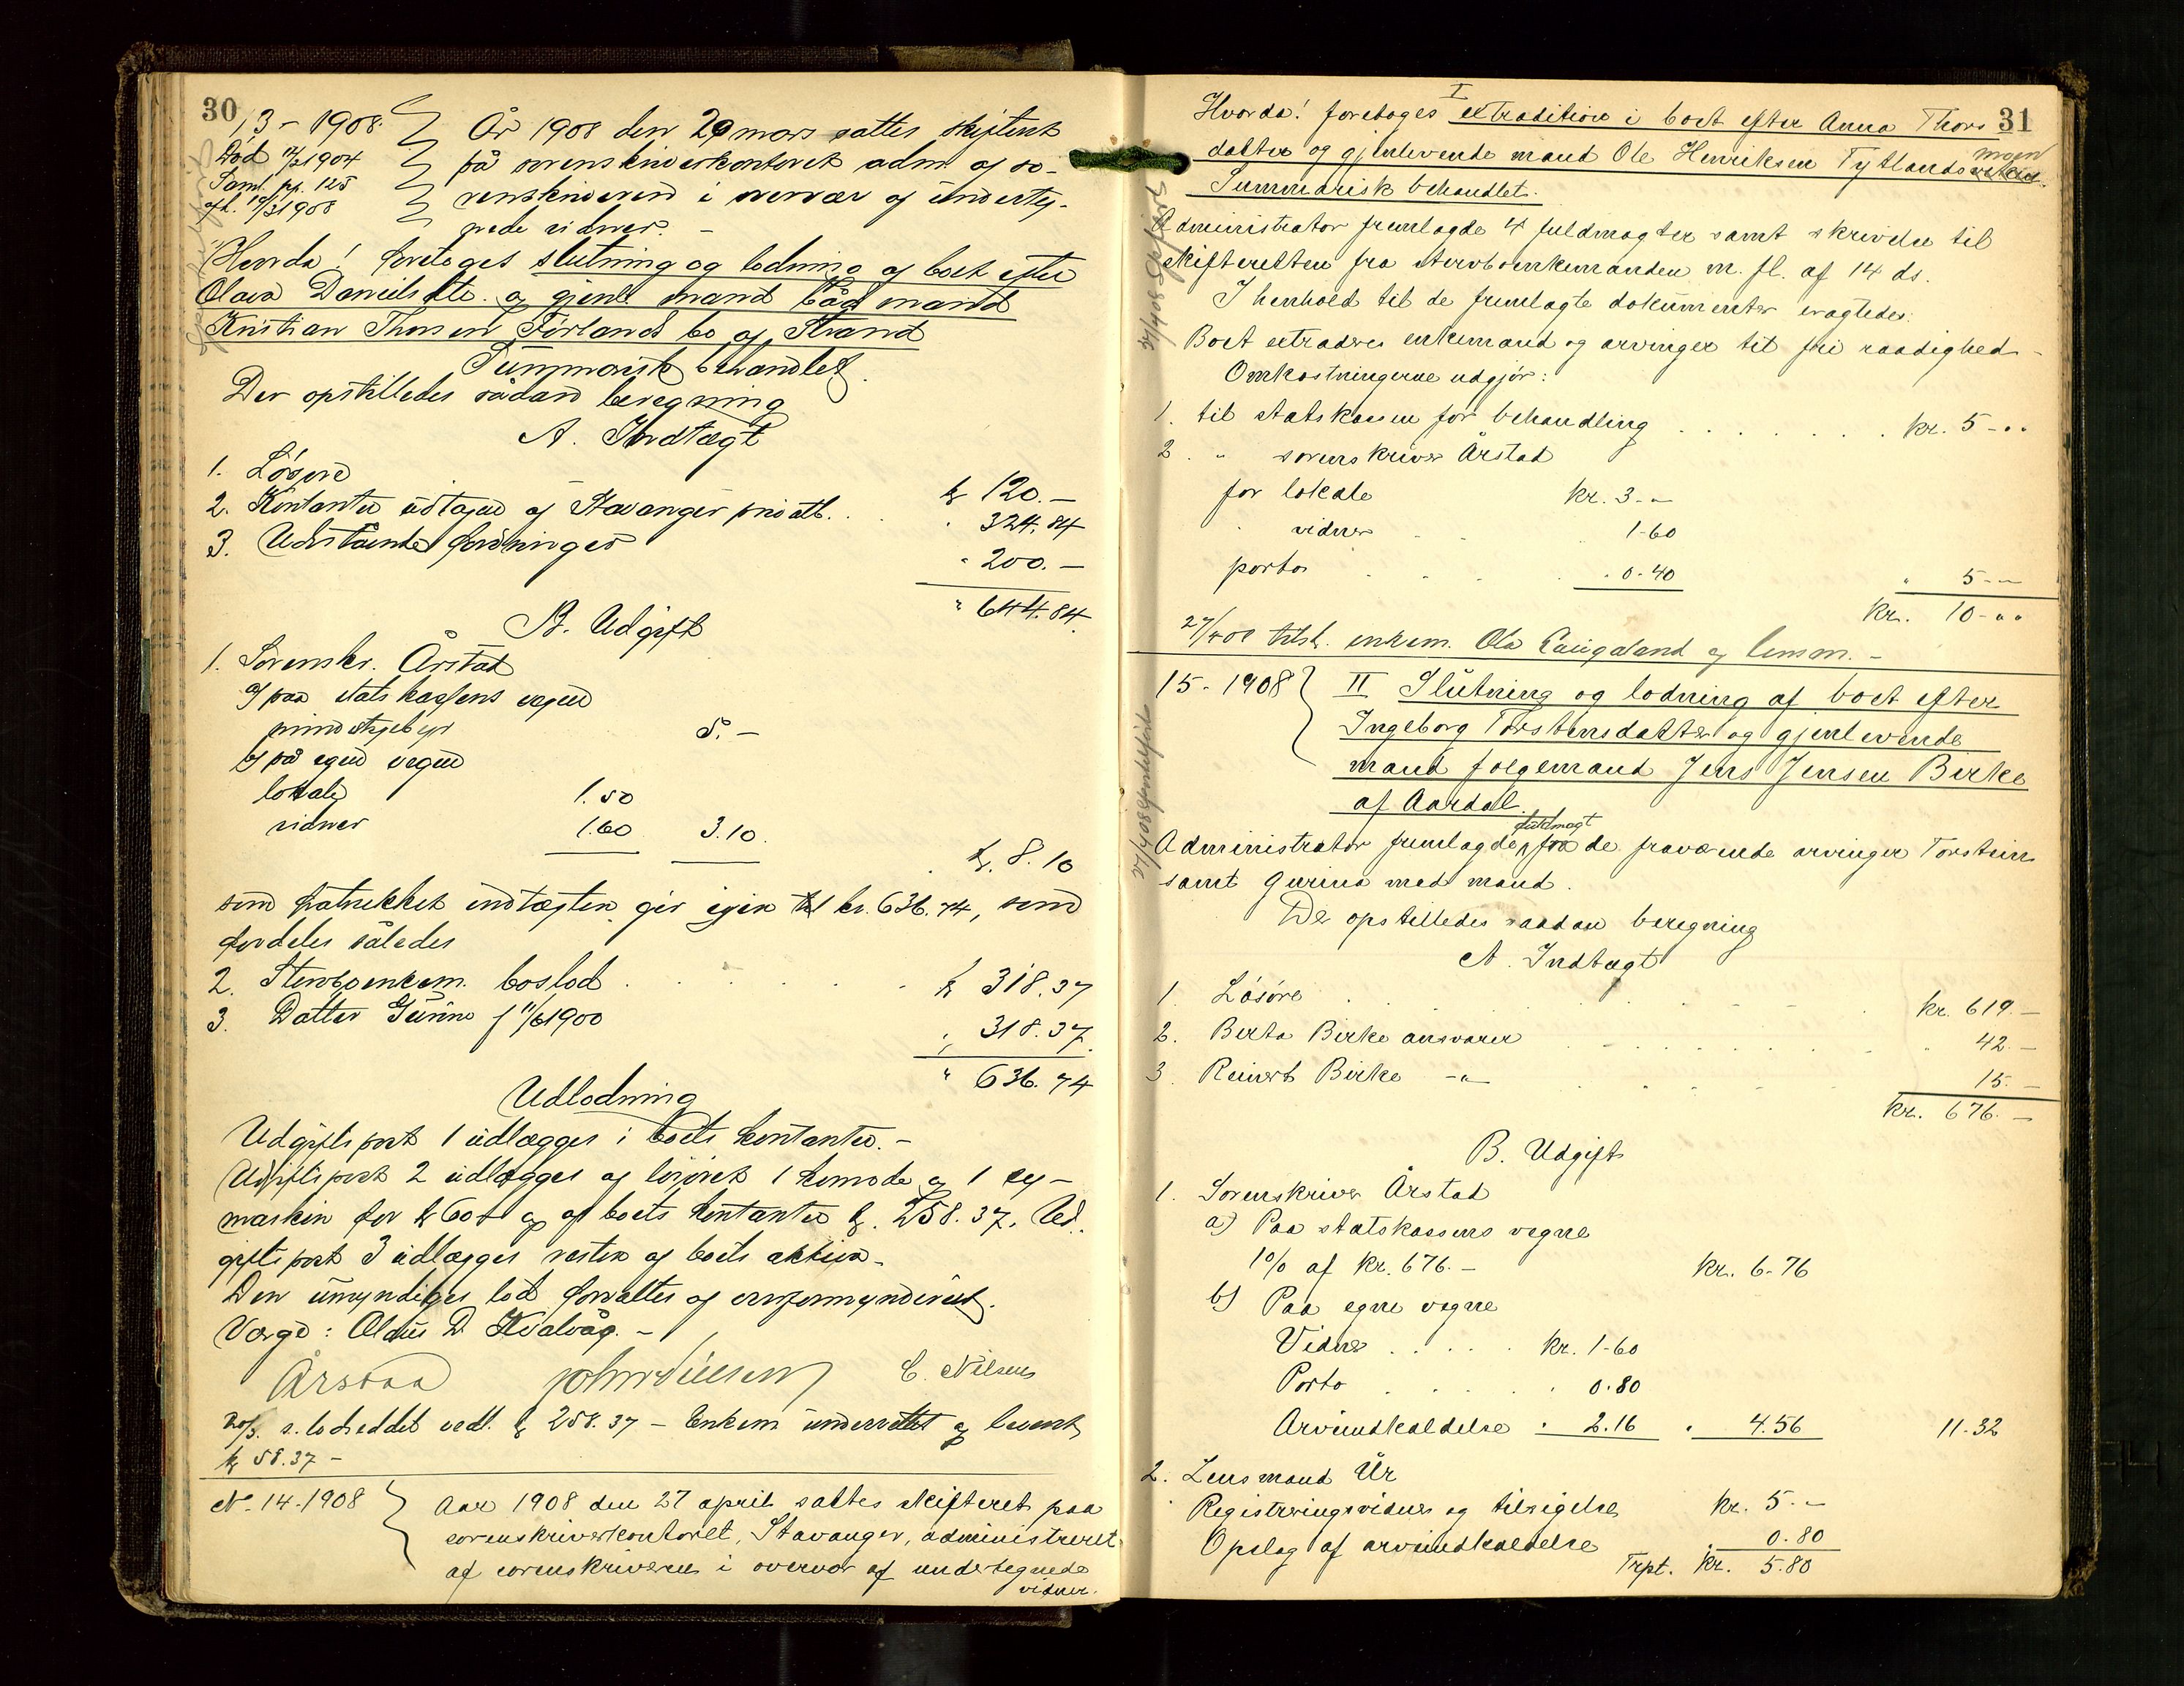 30
13 - 1908.
Død 1904
Saml. pk. 125
1908
År 1908 den 29 mars sattes skifteret
på sorenskriverkontoret adm. af so-
renskriveren i overvær af underteg-
nede vidner. -
Hvorda! foretoges slutning og lodning af boet efter
Olava Danielsdtr. og gjenl. mand Båd mand
Kristian Thorsen Förlands bo af Strand
Summarisk behandlet.
Der opstilledes sådan beregning
A. Indtægt
1. Løsøre kr 120.-
2. Kontanter udtaget af Stavanger privatb. . . " 324.84
3. Udestående fordringer " 200.-
" 644.84
B. Udgift
1. Sorenskr. Årstad
a) paa statskassens vegne
mindstegebyr 5.-
b) på egne vegne
lokale 1.50
vidner 1.60 3.10
kr. 8.10
som fratrukket indtægten gir igjen til kr. 636.74, som
fordeles således
2. Stervboenkem. boslod . . . . . kr 318.37
3. Datter Gunna f 11/6 1900 " 318.37
" 636.74
Udlodning
Udgifts post 1 udlægges i boets kontanter. -
Udgifts post 2 udlægges af løsøret 1 komode og 1 sy-
maskin for kr 60 og af boets kontanter kr. 258.37. Ud-
gifts post 3 udlægges resten af boets aktiva.
Den umyndiges lod forvaltes af overformynderiet.
Værge: Olaus D. Kvalvåg. -
Årstad C. Nilsen
s. lodseddel vedl. kr 258.37 - Enkem underrettet og
kr 58.37 -
No. 14-1908
Aar 1908 den 27 april sattes skifteret paa
sorenskriverkontoret, Stavanger, administreret
af sorenskriveren i overvær af undertegnede
vidner.
31
I
Hvorda! foretoges extradition i boet efter Anna Thors
datter og gjenlevende mand Ole Henriksen Tytlandsmoen
Summarisk behandlet.
Administrator fremlagde 4 fuldmagter samt skrivelse til
skifteretten fra stervboenkemanden m. fl. af 14 ds.
I henhold til de fremlagte dokumenter eragtedes:
Boet extraderes enkemand og arvinger til fri raadighed -
Omkostningerne udgjør:
1. til statskassen for behandling . . . . . . . kr. 5-""
2. " sorenskriver Årstad
for lokale kr. 3-"
" vidner . . 1-60
porto . . . . 0-40 " 5-"
kr. 10-""
27/4 08 tilst. enkem. Ola og lensm. -
15-1908
II Slutning og lodning af boet efter
Ingeborg Torstensdatter og gjenlevende
mand følgemand Jens Jensen Birke
af Aardal.
Administrator fremlagde fuldmagt fra de fraværende arvinger Torstein
samt Gurina med mand.
De opstilledes saadan beregning
A. Indtægt
1. Løsøre . . . . . . kr. 619.-
2. Berta Birke ansvarer . . . . . . " 42.-
3. Reinert Birke -"- . . . . . 15.-
kr. 676.-
B. Udgift
1. Sorenskriver Årstad
a) Paa statskassens vegne
1% af kr. 676.- kr. 6-76
b) Paa egne vegne
Vidner . . . . kr. 1-60
Porto . . . . . 0.80
Arveindkaldelse " 2.16 " 4.56 11-32
2. Lensmand Ur
Registreringsvidner og tilsigelse kr. 5--
Opslag af arveindkaldelse " 0.80
Trpt. kr. 5.80